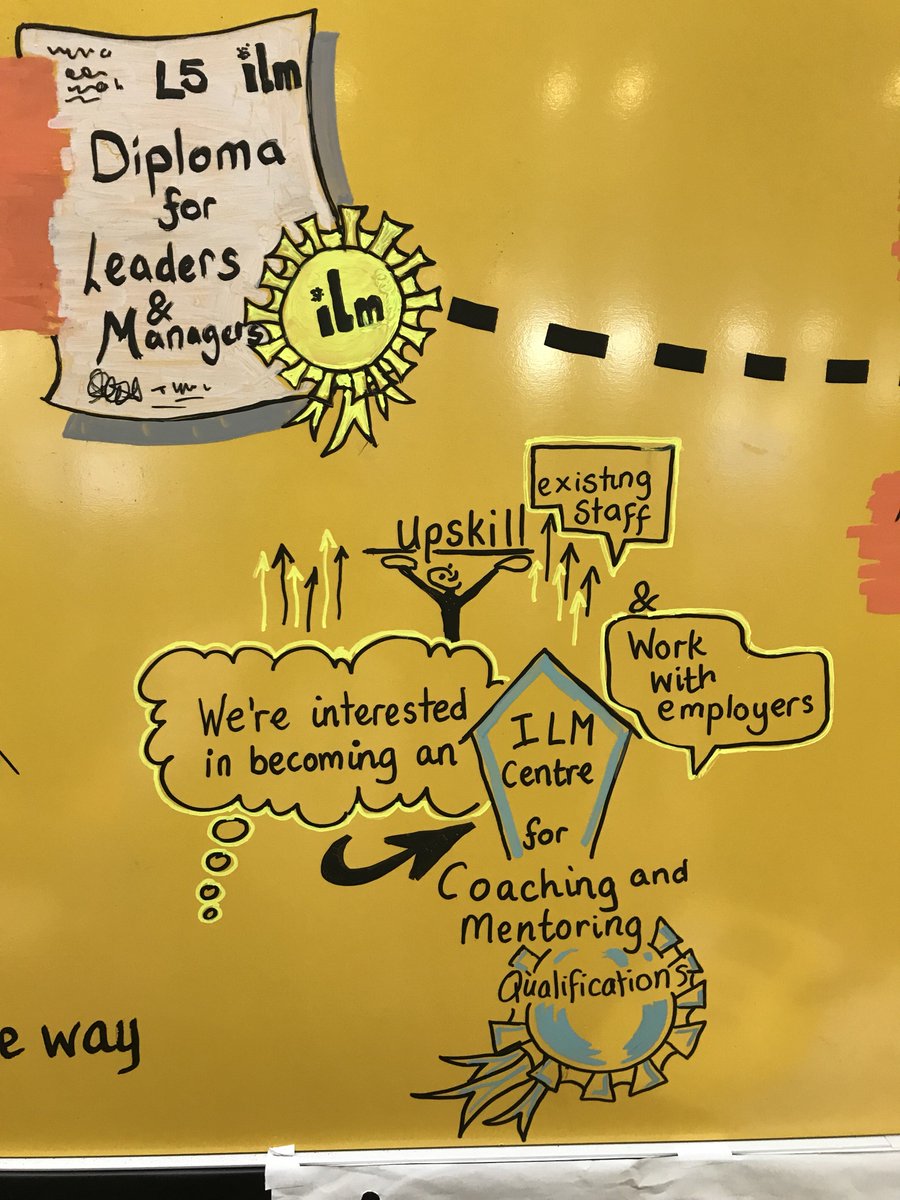 L5 ilm
Diploma
for
Leaders
&
Managers
ilm
existing
Staff
upskill
&
Work
with
employers
We're interested
in becoming an
ILM
Centre
for
Coaching and
Mentoring
Qualifications
e way